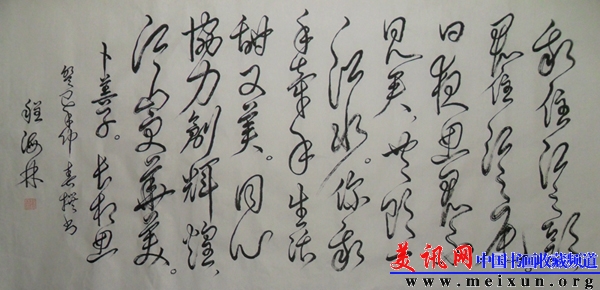 我住江之頭
君住江之尾。
日夜思君不
見君，共飲
一江水。你我
手牽手生活
甜又美。同心
協力創輝煌，
江山更華美。
卜算子。长相思
癸巳年仲春撰书
程海林
美讯网 中国书画收藏频道
www.meixun.org